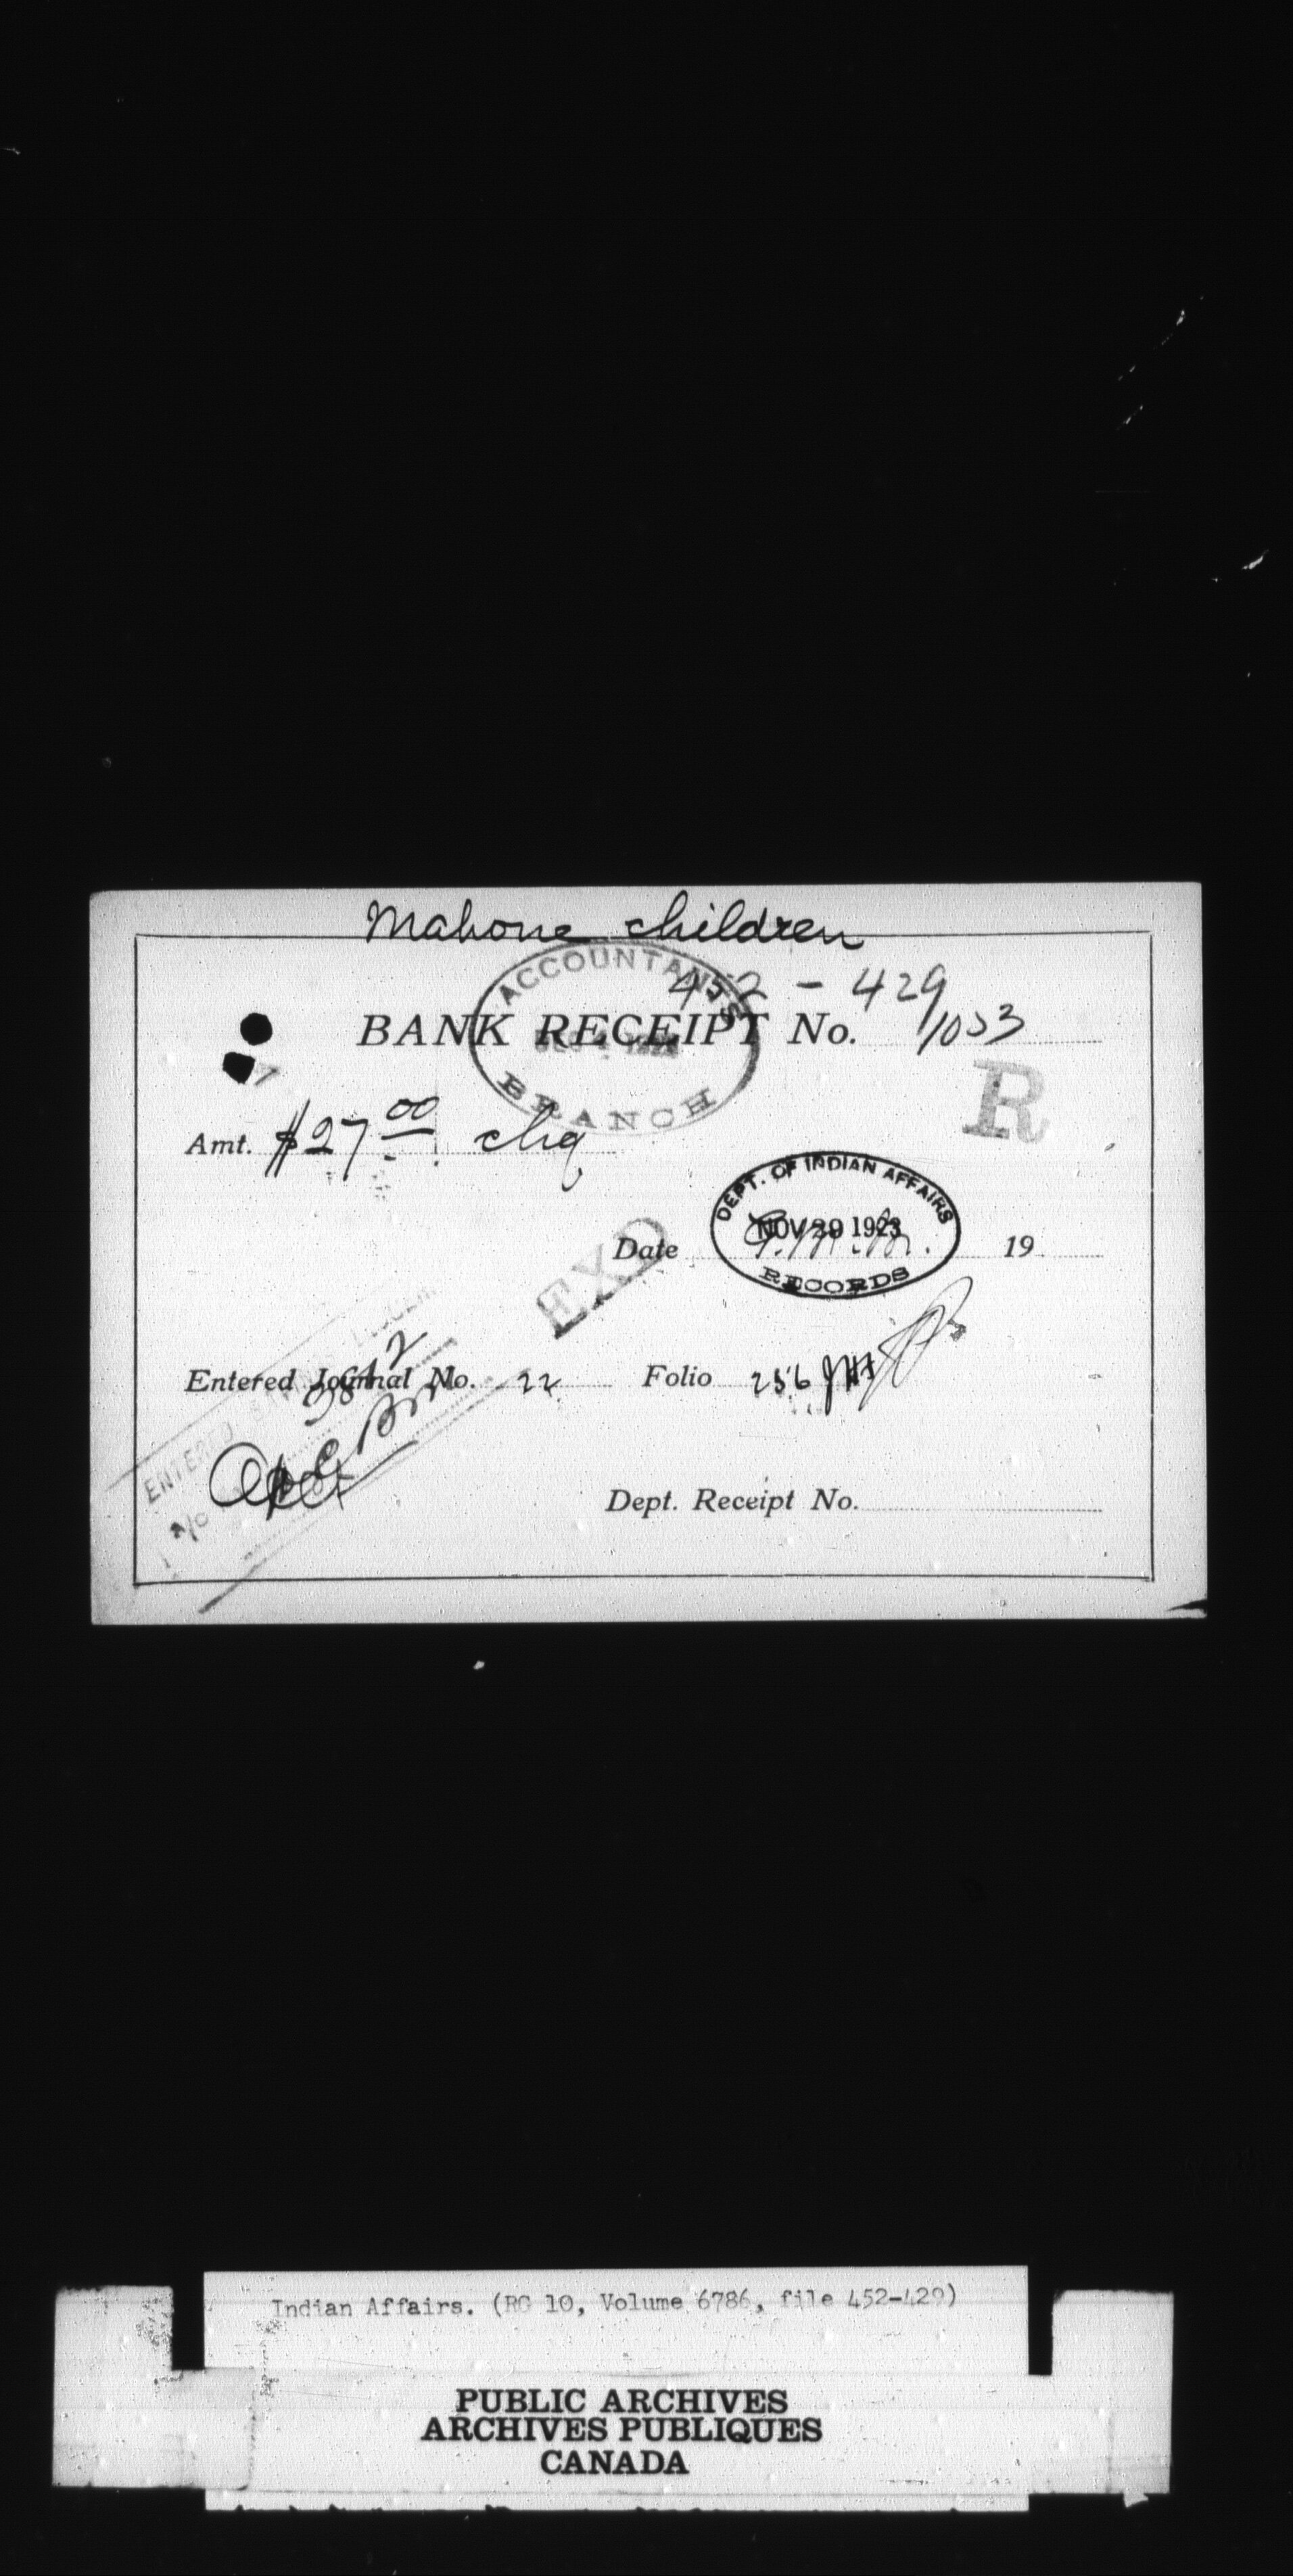 Mahone children
452 - 429
ACCOUNTANTS
BANK RECEIPT No. 1053
BRANCH
R
Amt. $27.00 chq
DEPT. OF INDIAN AFFAIRS
NOV 29 1923
Date 19
RECORDS
EXD
Entered Journal No. 22 Folio 256
ENTERED
Dept. Receipt No.
Indian Affairs. (RG 10, Volume 6786, file 452-429)
PUBLIC ARCHIVES
ARCHIVES PUBLIQUES
CANADA